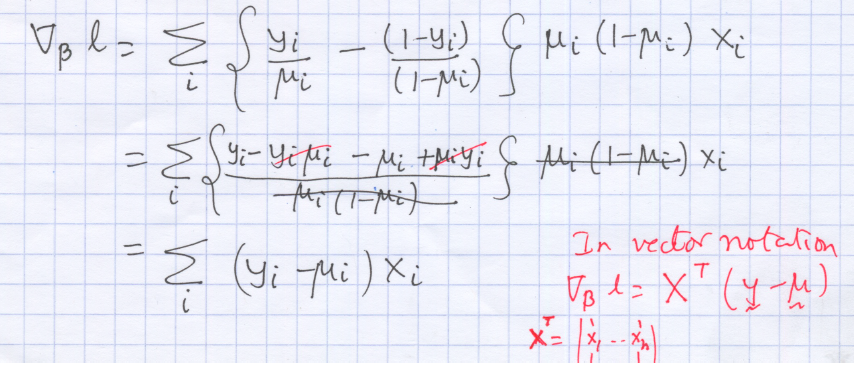 ∇β l = Σi { yi/μi − (1−yi)/(1−μi) } μi (1−μi) xi
= Σi { (yi − yiμi − μi + μiyi) / (μi (1−μi)) } μi (1−μi) xi
= Σi (yi − μi) xi
In vector notation
∇β l = X^T (y − μ)
X^T = | x1 ... xn |